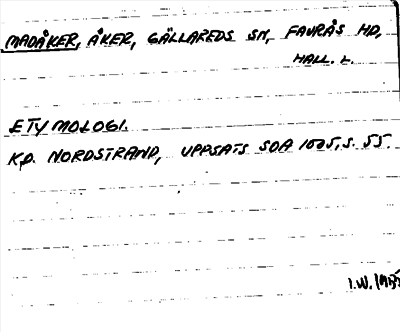 MADÅKER, ÅKER, GÄLLAREDS SN, FAURÅS HD,
HALL. L.
ETYMOLOGI.
K.D. NORDSTRAND, UPPSATS SOA 1025, S. 55.
I.W. 1935